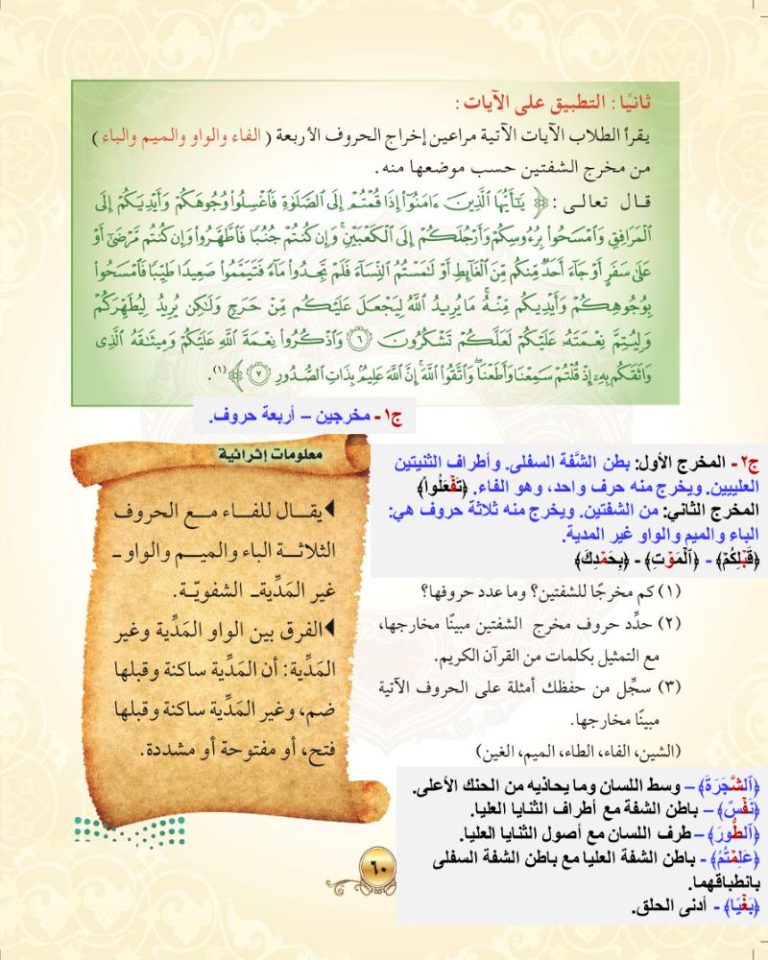 ثانيًا : التطبيق على الآيات :
يقرأ الطلاب الآيات الآتية مراعين إخراج الحروف الأربعة ( الفاء والواو والميم والباء )
من مخرج الشفتين حسب موضعها منه .
قال تعالى : ﴿ يَٰٓأَيُّهَا ٱلَّذِينَ ءَامَنُوٓا۟ إِذَا قُمْتُمْ إِلَى ٱلصَّلَوٰةِ فَٱغْسِلُوا۟ وُجُوهَكُمْ وَأَيْدِيَكُمْ إِلَى
ٱلْمَرَافِقِ وَٱمْسَحُوا۟ بِرُءُوسِكُمْ وَأَرْجُلَكُمْ إِلَى ٱلْكَعْبَيْنِ ۚ وَإِن كُنتُمْ جُنُبًا فَٱطَّهَّرُوا۟ ۚ وَإِن كُنتُم مَّرْضَىٰٓ أَوْ
عَلَىٰ سَفَرٍ أَوْ جَآءَ أَحَدٌ مِّنكُم مِّنَ ٱلْغَآئِطِ أَوْ لَٰمَسْتُمُ ٱلنِّسَآءَ فَلَمْ تَجِدُوا۟ مَآءً فَتَيَمَّمُوا۟ صَعِيدًا طَيِّبًا فَٱمْسَحُوا۟
بِوُجُوهِكُمْ وَأَيْدِيكُم مِّنْهُ ۚ مَا يُرِيدُ ٱللَّهُ لِيَجْعَلَ عَلَيْكُم مِّنْ حَرَجٍ وَلَٰكِن يُرِيدُ لِيُطَهِّرَكُمْ
وَلِيُتِمَّ نِعْمَتَهُۥ عَلَيْكُمْ لَعَلَّكُمْ تَشْكُرُونَ ٦ وَٱذْكُرُوا۟ نِعْمَةَ ٱللَّهِ عَلَيْكُمْ وَمِيثَٰقَهُ ٱلَّذِى
وَاثَقَكُم بِهِۦٓ إِذْ قُلْتُمْ سَمِعْنَا وَأَطَعْنَا ۖ وَٱتَّقُوا۟ ٱللَّهَ ۚ إِنَّ ٱللَّهَ عَلِيمٌۢ بِذَاتِ ٱلصُّدُورِ ٧ ﴾ (١) .
ج١ - مخرجين – أربعة حروف.
ج٢ - المخرج الأول: بطن الشَّفة السفلى. وأطراف الثنيتين
العلييين. ويخرج منه حرف واحد، وهو الفاء. ﴿تَفْعَلُوا۟﴾
المخرج الثاني: من الشفتين. ويخرج منه ثلاثة حروف هي:
الباء والميم والواو غير المدية.
﴿قَبْلِكُمْ﴾ - ﴿ٱلْمَوْتِ﴾ - ﴿بِحَمْدِكَ﴾
(١) كم مخرجًا للشفتين؟ وما عدد حروفها؟
(٢) حدِّد حروف مخرج الشفتين مبينًا مخارجها،
مع التمثيل بكلمات من القرآن الكريم.
(٣) سجِّل من حفظك أمثلة على الحروف الآتية
مبينًا مخارجها.
(الشين، الفاء، الطاء، الميم، الغين)
﴿ٱلشَّجَرَةَ﴾ – وسط اللسان وما يحاذيه من الحنك الأعلى.
﴿نَفْسٌ﴾ – باطن الشفة مع أطراف الثنايا العليا.
﴿ٱلطُّورَ﴾ – طرف اللسان مع أصول الثنايا العليا.
﴿عَلِمْتُمُ﴾ - باطن الشفة العليا مع باطن الشفة السفلى
بانطباقهما.
﴿بَغْيًا﴾ - أدنى الحلق.
معلومات إثرائية
يقال للفاء مع الحروف
الثلاثة الباء والميم والواو ـ
غير المَدِّية ـ الشفويّة.
الفرق بين الواو المَدِّية وغير
المَدِّية: أن المَدِّية ساكنة وقبلها
ضم، وغير المَدِّية ساكنة وقبلها
فتح، أو مفتوحة أو مشددة.
٦٠